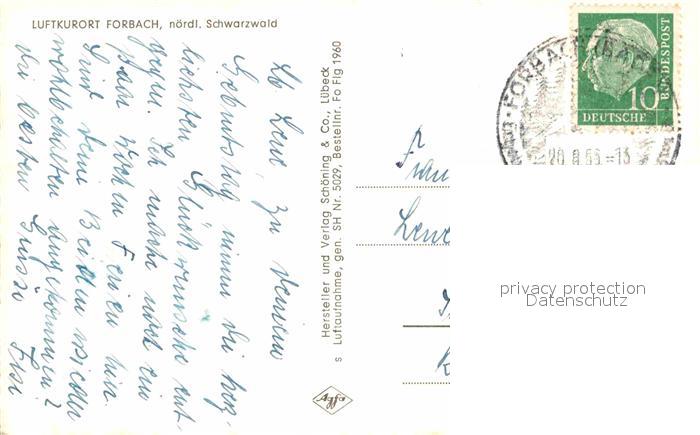 LUFTKURORT FORBACH, nördl. Schwarzwald
Lb Lene, zu Deinem
Geburtstag nimm die herz-
lichsten Glückwünsche ent-
gegen. Ich mache noch ein
paar Wochen Ferien hier.
Seid Ihr Beiden wieder
wohlbehalten angekommen?
Die besten Grüsse
Hersteller und Verlag Schöning & Co., Lübeck
Luftaufnahme, gen. SH Nr. 5029, Bestellnr. Fo Flg 1960
S
Agfa
FORBACH (BADEN)
10
DEUTSCHE
BUNDESPOST
Frau
Lene
privacy protection
Datenschutz